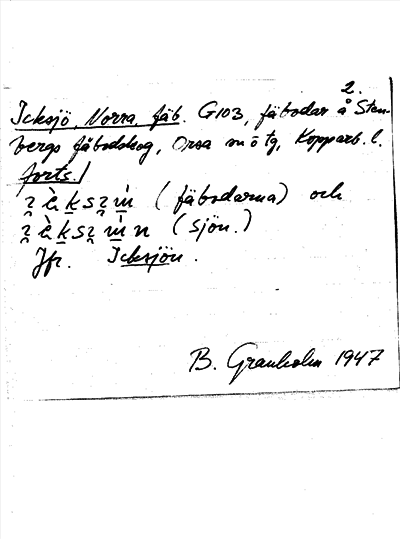 2.
Icksjö, Norra, fäb. G103, fäbodar å Sten-
bergs fäbodskog, Orsa m o tg, Kopparb. l.
forts./
(fäbodarna) och
(sjön.)
Jfr. Icksjön.
B. Granholm 1947